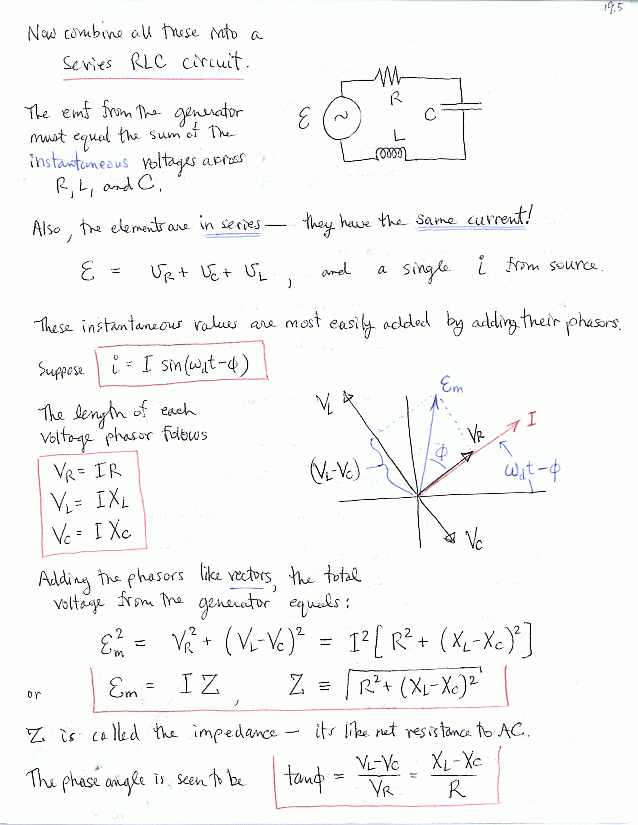 19.5
Now combine all these into a
Series RLC circuit.
The emf from the generator
must equal the sum of the
instantaneous voltages across
R, L, and C.
R
C
L
ℰ
~
Also, the elements are in series — they have the same current!
ℰ = v_R + v_C + v_L , and a single i from source.
These instantaneous values are most easily added by adding their phasors.
Suppose i = I sin(ω_d t - φ)
The length of each
voltage phasor follows
V_R = IR
V_L = I X_L
V_C = I X_C
V_L
ℰ_m
V_R
I
φ
(V_L - V_C)
ω_d t - φ
V_C
Adding the phasors like vectors, the total
voltage from the generator equals:
ℰ_m² = V_R² + (V_L - V_C)² = I² [R² + (X_L - X_C)²]
or ℰ_m = I Z , Z ≡ √(R² + (X_L - X_C)²)
Z is called the impedance — its like net resistance to AC.
The phase angle is seen to be tanφ = (V_L - V_C)/V_R = (X_L - X_C)/R